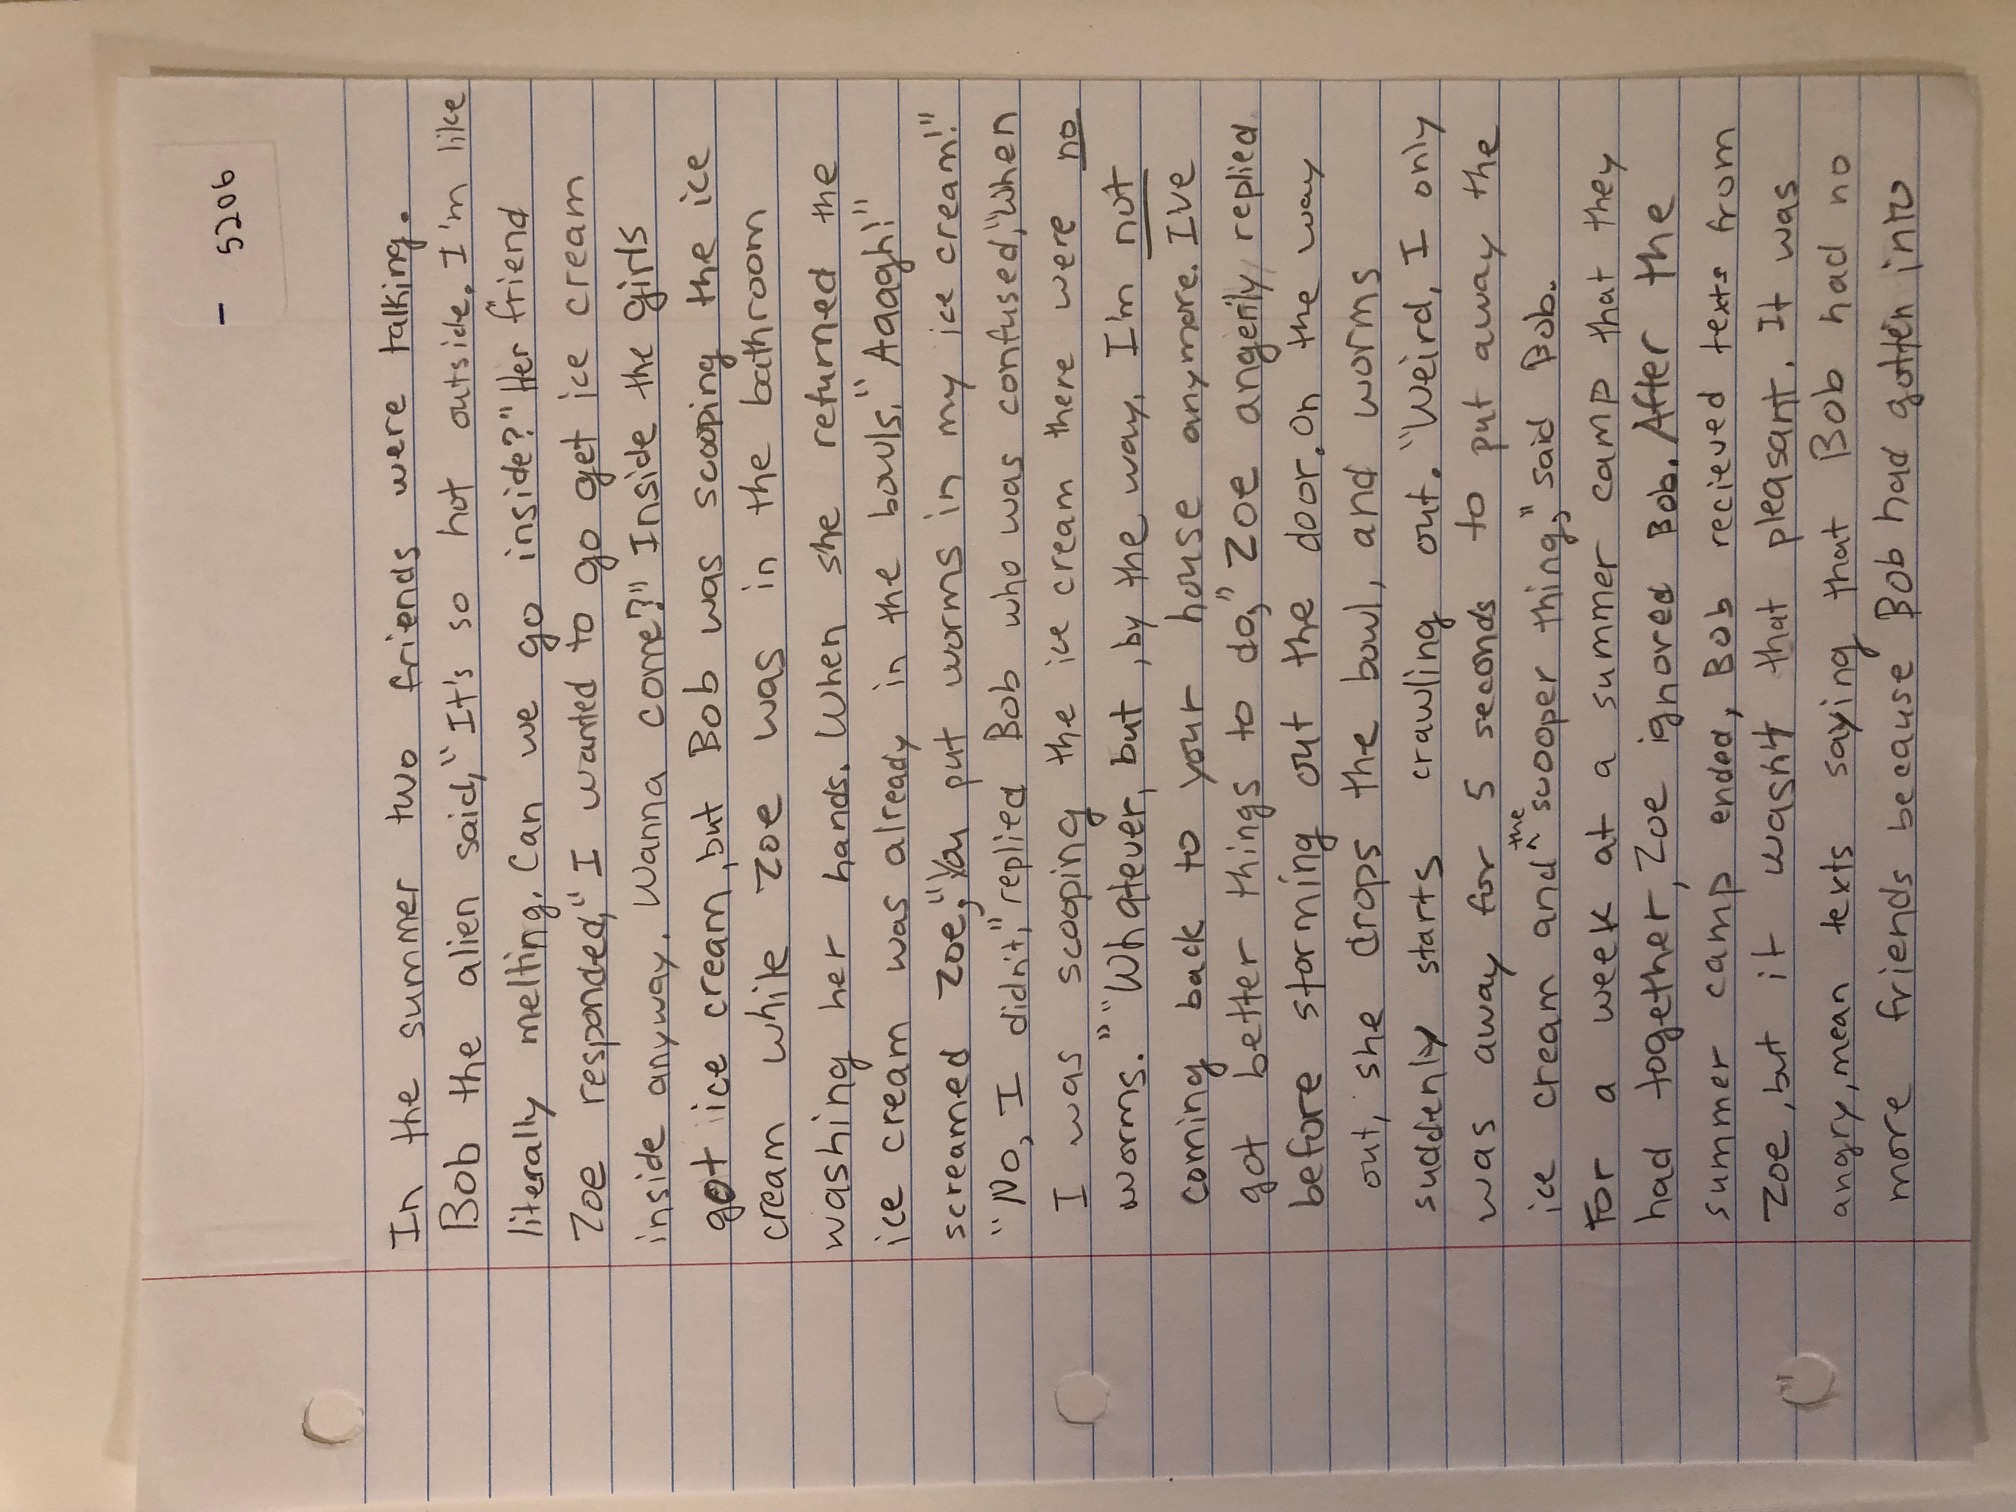 - 5206
In the summer two friends were talking.
Bob the alien said, "It's so hot outside. I'm like
literally melting. Can we go inside?" Her friend
Zoe responded, "I wanted to go get ice cream
inside anyway. Wanna come?" Inside the girls
got ice cream, but Bob was scooping the ice
cream while Zoe was in the bathroom
washing her hands. When she returned the
ice cream was already in the bowls. "Aaagh!"
screamed Zoe, "You put worms in my ice cream!"
"No, I didn't," replied Bob who was confused, "When
I was scooping the ice cream there were no
worms." "Whatever, but, by the way, I'm not
coming back to your house anymore. I've
got better things to do," Zoe angerily replied
before storming out the door. On the way
out, she drops the bowl, and worms
suddenly starts crawling out. "Weird, I only
was away for 5 seconds to put away the
ice cream and ^the scooper thing," said Bob.
For a week at a summer camp that they
had together, Zoe ignored Bob. After the
summer camp ended, Bob recieved texts from
Zoe, but it wasn't that pleasant. It was
angry, mean texts saying that Bob had no
more friends because Bob had gotten into